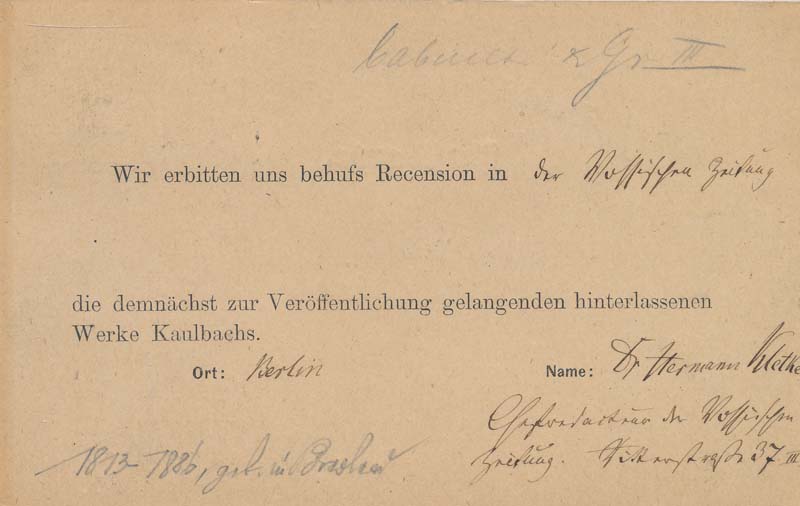 Cabinet & Gr. III
Wir erbitten uns behufs Recension in der Vossischen Zeitung
die demnächst zur Veröffentlichung gelangenden hinterlassenen
Werke Kaulbachs.
Ort: Berlin
Name: Dr Hermann Kletke
Chefredacteur der Vossischen
Zeitung. Ritterstraße 37 III
1813-1886, geb. in Breslau